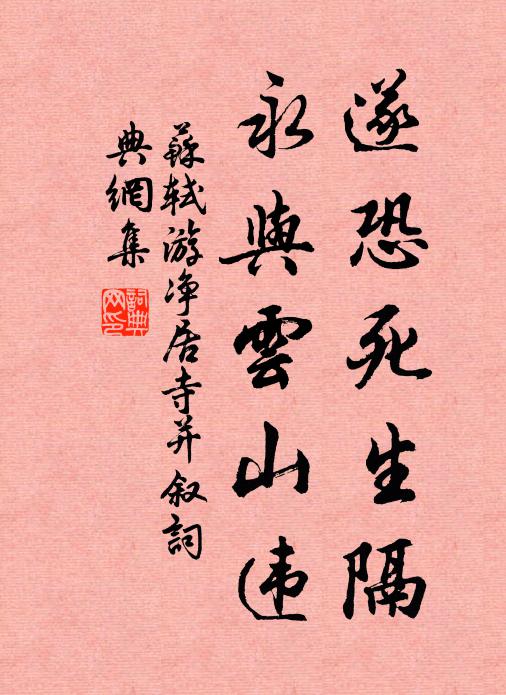 遂恐死生隔
永與雲山违
蘇轼游净居寺并叙詞
典網集
詞典網印